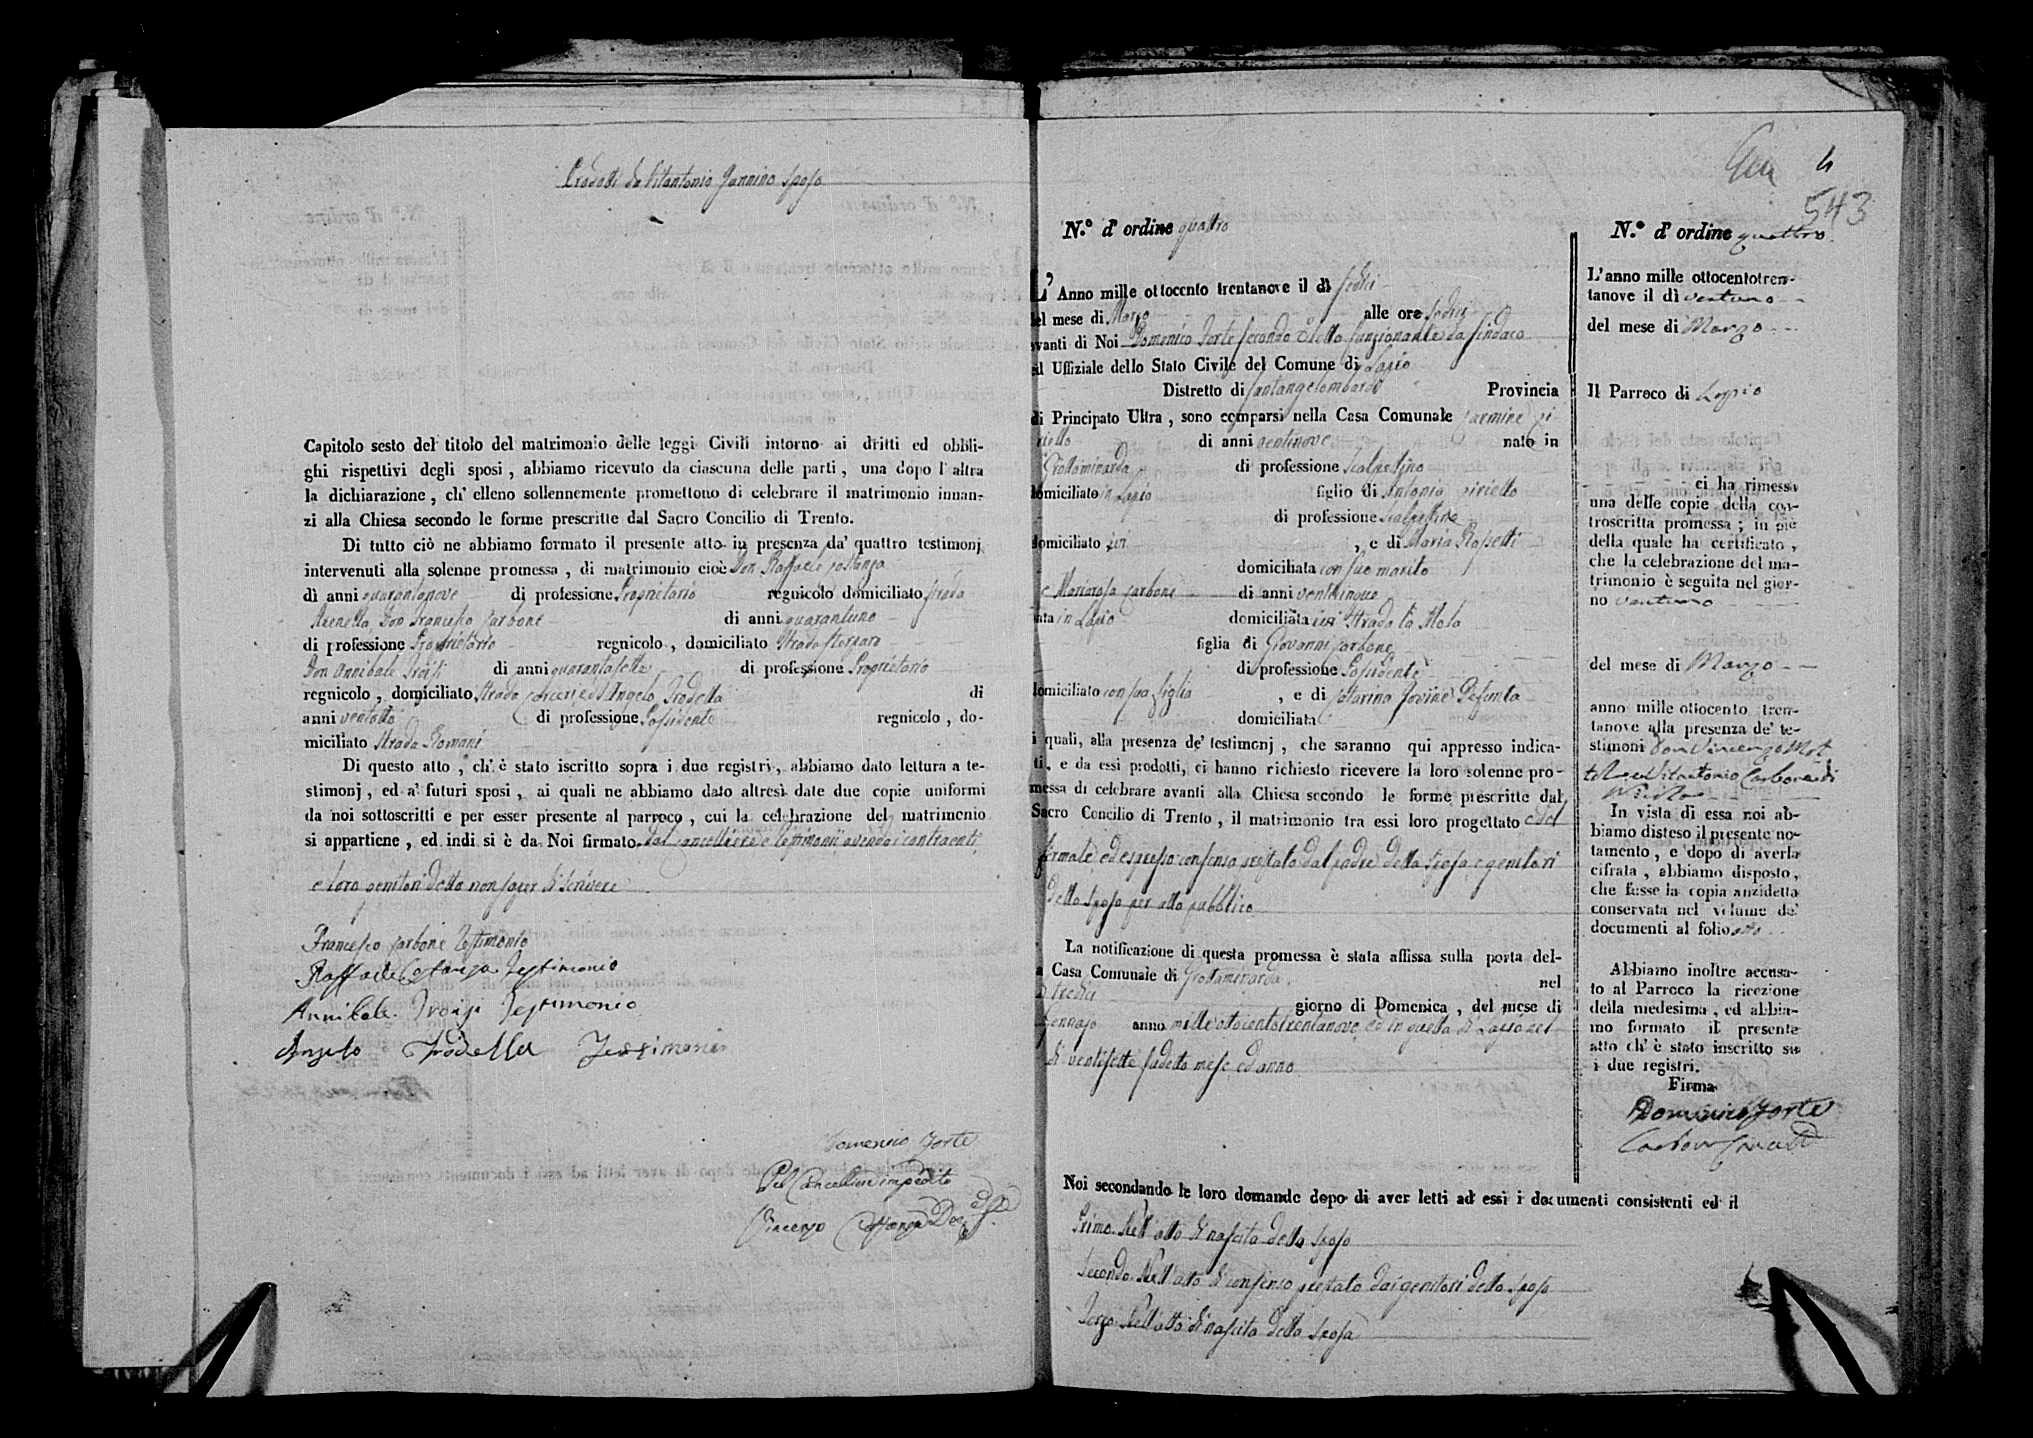 Prodotti da Vitantonio Jannino sposo
Capitolo sesto del titolo del matrimonio delle leggi Civili intorno ai dritti ed obbli-
ghi rispettivi degli sposi, abbiamo ricevuto da ciascuna delle parti, una dopo l'altra
la dichiarazione, ch' elleno sollennemente promettono di celebrare il matrimonio innan-
zi alla Chiesa secondo le forme prescritte dal Sacro Concilio di Trento.
Di tutto ciò ne abbiamo formato il presente atto in presenza da' quattro testimonj
intervenuti alla solenne promessa, di matrimonio cioè Don Raffaele Costanza
di anni quarantanove di professione Proprietario regnicolo domiciliato strada
Arenella Don Francesco Carbone di anni quarantuno
di professione Proprietario regnicolo, domiciliato Strada
Don Annibale Troisi di anni quarantasette di professione Proprietario
regnicolo, domiciliato Strada Carceri ed Angelo Trodella di
anni ventotto di professione Possidente regnicolo, do-
miciliato Strada Romani
Di questo atto, ch' è stato iscritto sopra i due registri, abbiamo dato lettura a te-
stimonj, ed a' futuri sposi, ai quali ne abbiamo dato altresì date due copie uniformi
da noi sottoscritti e per esser presente al parroco, cui la celebrazione del matrimonio
si appartiene, ed indi si è da Noi firmato dal Cancelliere e testimonii avendo i contraenti
e loro genitori detto non saper di scrivere
Francesco Carbone Testimonio
Raffaele Costanza Testimonio
Annibale Troisi Testimonio
Angelo Trodella Testimonio
Domenico Forte
Pel Cancelliere impedito
Vincenzo Costanza
4
543
N.º d' ordine quattro
L' Anno mille ottocento trentanove il dì sedici
del mese di Marzo alle ore sedici
avanti di Noi Domenico Forte secondo Eletto funzionante da Sindaco
ed Uffiziale dello Stato Civile del Comune di Lapio
Distretto di Santangelolombardi Provincia
di Principato Ultra, sono comparsi nella Casa Comunale Carmine Ci
riello di anni ventinove nato in
Grottaminarda di professione Scalpellino
domiciliato in Lapio figlio di Antonio Ciriello
di professione Scalpellino
domiciliato ivi, e di Maria Rossetti
domiciliata con suo marito
e Mariarosa Carbone di anni ventinove
nata in Lapio domiciliata ivi Strada la Mola
figlia di Giovanni Carbone
di professione Possidente
domiciliato con sua figlia, e di Marina Jovine Defunta
domiciliata
i quali, alla presenza de' testimonj, che saranno qui appresso indica-
ti, e da essi prodotti, ci hanno richiesto ricevere la loro solenne pro-
messa di celebrare avanti alla Chiesa secondo le forme prescritte dal
Sacro Concilio di Trento, il matrimonio tra essi loro progettato e del
formale, ed espresso consenso prestato dal padre della sposa e genitori
dello sposo per atto pubblico
La notificazione di questa promessa è stata affissa sulla porta del-
la Casa Comunale di Grottaminarda nel
dì tredici giorno di Domenica, del mese di
Gennajo anno mille ottocentotrentanove, ed in quella di Lapio nel
dì ventisette sudetto mese ed anno
Noi secondando le loro domande dopo di aver letti ad essi i documenti consistenti ed il
Primo Nell'atto di nascita dello sposo
Secondo Nell'atto di consenso prestato dai genitori dello sposo
Terzo Nell'atto di nascita della sposa
N.º d' ordine quattro
L'anno mille ottocentotren-
tanove il dì ventuno
del mese di Marzo
Il Parroco di Lapio
ci ha rimessa
una delle copie della con-
troscritta promessa; in piè
della quale ha certificato,
che la celebrazione del ma-
trimonio è seguita nel gior-
no ventuno
del mese di Marzo
anno mille ottocento tren-
tanove alla presenza de' te-
stimoni Don Vincenzo
Vitantonio Carbone di
In vista di essa noi ab-
biamo disteso il presente no-
tamento, e dopo di averla
cifrata, abbiamo disposto,
che fusse la copia anzidetta
conservata nel volume de'
documenti al folio otto
Abbiamo inoltre accusa-
to al Parroco la ricezione
della medesima, ed abbia-
mo formato il presente
atto ch' è stato inscritto su
i due registri.
Firma
Domenico Forte